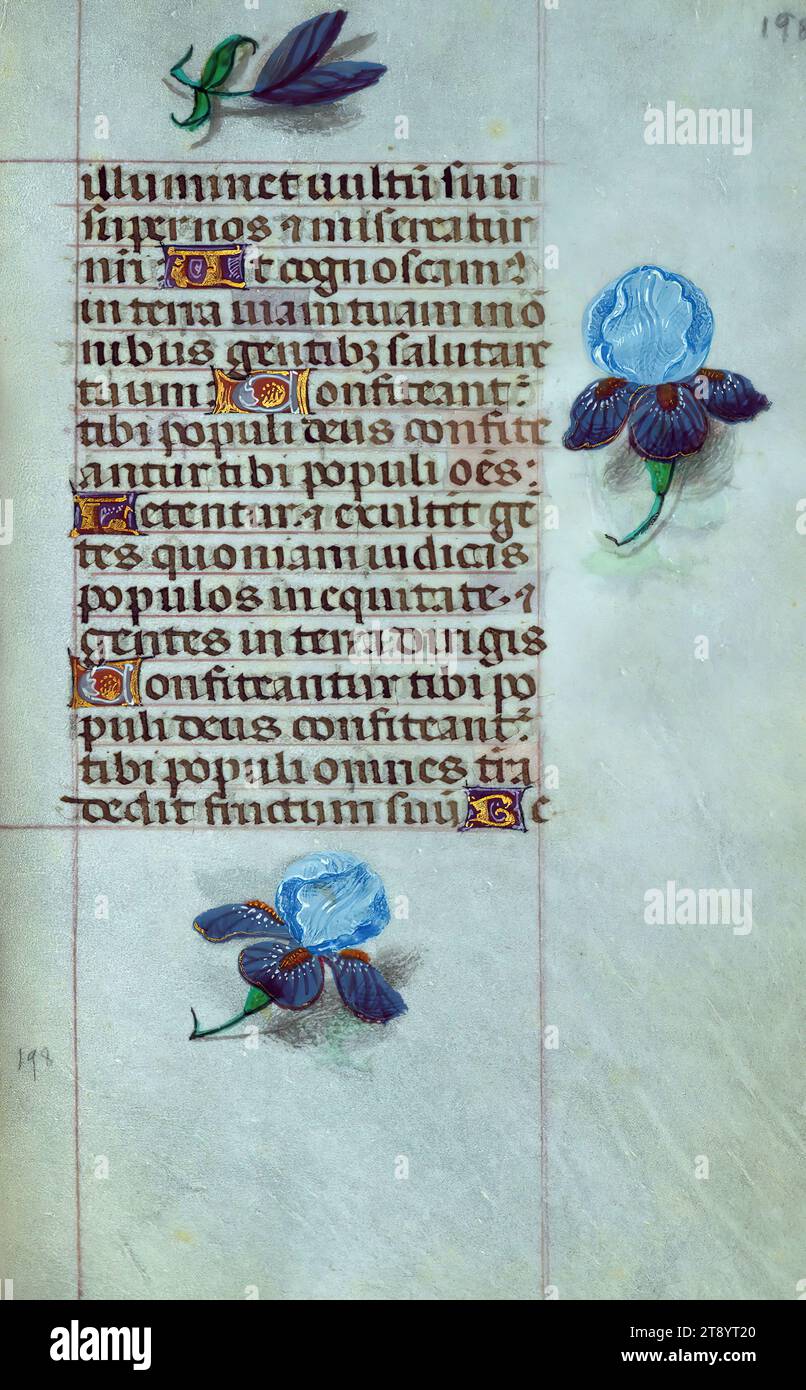 198
illuminet uultū suū
super nos ⁊ misereatur
nr̄i Ut cognoscam⁹
in terra uiam tuam in ō
nibus gentibꝫ salutare
tuum Confiteant᷑
tibi populi deus confite
antur tibi populi oēs:
Letentur ⁊ exultēt gē
tes quoniam iudicas
populos in equitate ⁊
gentes in terra dirigis
Confiteantur tibi po
puli deus confiteant᷑
tibi populi omnes t̄ra
dedit fructum suū Be
198
alamy
alamy
alamy
Image ID: 2T8YT20
www.alamy.com